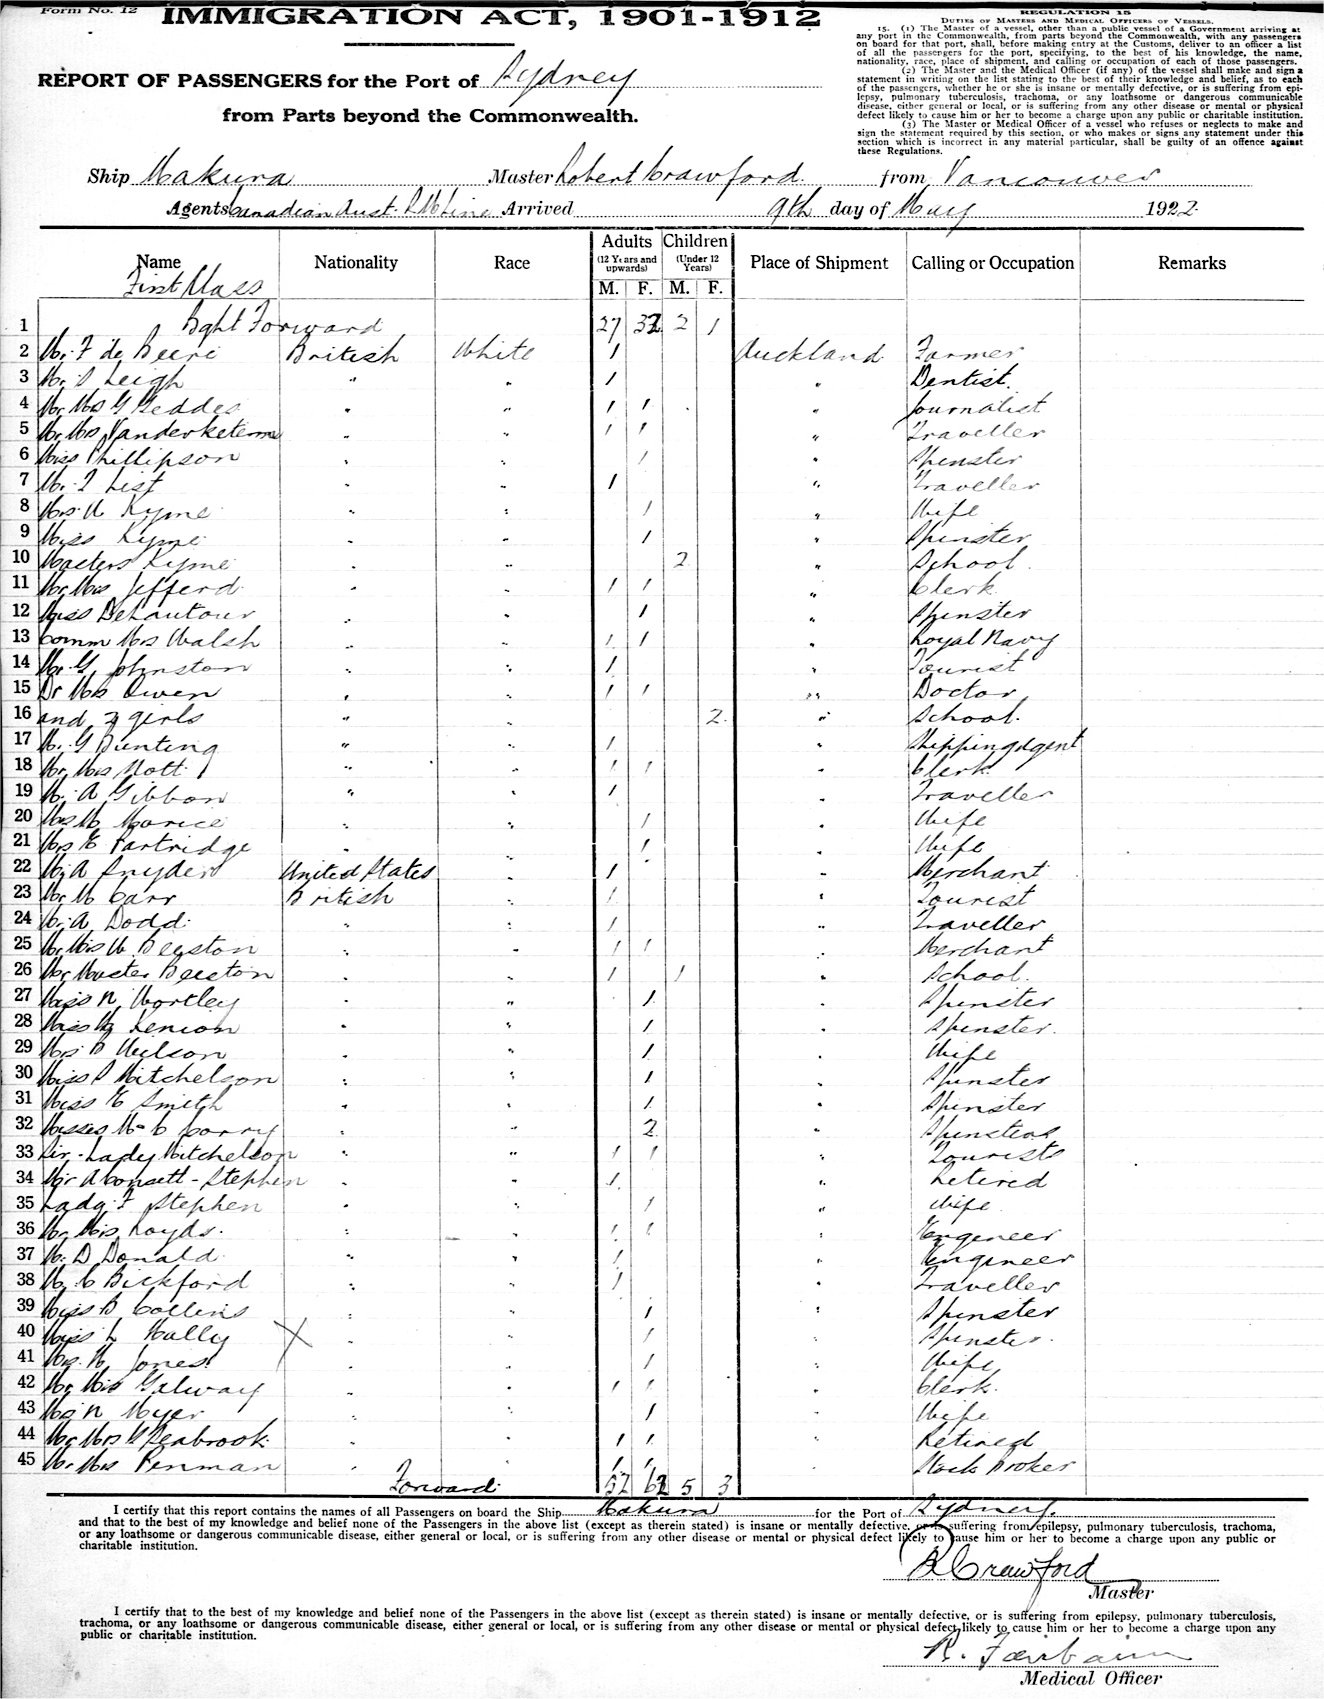 Form No. 12
IMMIGRATION ACT, 1901-1912
REGULATION 15
DUTIES OF MASTERS AND MEDICAL OFFICERS OF VESSELS.
15. (1) The Master of a vessel, other than a public vessel of a Government arriving at
any port in the Commonwealth, from parts beyond the Commonwealth, with any passengers
on board for that port, shall, before making entry at the Customs, deliver to an officer a list
of all the passengers for the port, specifying, to the best of his knowledge, the name,
nationality, race, place of shipment, and calling or occupation of each of those passengers.
(2) The Master and the Medical Officer (if any) of the vessel shall make and sign a
statement in writing on the list stating to the best of their knowledge and belief, as to each
of the passengers, whether he or she is insane or mentally defective, or is suffering from epi-
lepsy, pulmonary tuberculosis, trachoma, or any loathsome or dangerous communicable
disease, either general or local, or is suffering from any other disease or mental or physical
defect likely to cause him or her to become a charge upon any public or charitable institution.
(3) The Master or Medical Officer of a vessel who refuses or neglects to make and
sign the statement required by this section, or who makes or signs any statement under this
section which is incorrect in any material particular, shall be guilty of an offence against
these Regulations.
REPORT OF PASSENGERS for the Port of Sydney
from Parts beyond the Commonwealth.
Ship Makura Master Robert Crawford from Vancouver
Agents Canadian Aust. R M Line Arrived 9th day of May 1922
Name Nationality Race Adults (12 Years and upwards) Children (Under 12 Years) Place of Shipment Calling or Occupation Remarks
First Class M. F. M. F.
1 Bght Forward 27 32 2 1
2 Mr F de Beere British White 1 Auckland Farmer
3 Mr S Leigh " " 1 " Dentist.
4 Mr Mrs G Geddes " " 1 1 " Journalist
5 Mr Mrs " " 1 1 " Traveller
6 Miss Phillipson " " 1 " Spinster
7 Mr List " " 1 " Traveller
8 Mrs Kyme " " 1 " Wife
9 Miss Kyme " " 1 " Spinster
10 Masters Kyme " " 2 " School
11 Mr Mrs Jefferd " " 1 1 " Clerk
12 Miss DeLautour " " 1 " Spinster
13 Comm Mrs Walsh " " 1 1 " Royal Navy
14 Mr G Johnston " " 1 " Tourist
15 Dr Mrs Owen " " 1 1 " Doctor
16 and 2 girls " " 2 " School.
17 Mr G Bunting " " 1 " Shipping Agent
18 Mr Mrs Nott " " 1 1 " Clerk
19 Mr A Gibbon " " 1 " Traveller
20 Mrs M Morice " " 1 " Wife
21 Mrs E Partridge " " 1 " Wife
22 Mr A Snyder United States " 1 " Merchant
23 Mr M Carr British " 1 " Tourist
24 Mr A Dodd " " 1 " Traveller
25 Mr Mrs W Beeston " " 1 1 " Merchant
26 Mr Master Beeston " " 1 1 " School.
27 Miss N Wortley " " 1 " Spinster
28 Miss Lenion " " 1 " Spinster.
29 Mrs B Wilson " " 1 " Wife
30 Miss S Mitchelson " " 1 " Spinster
31 Miss E Smith " " 1 " Spinster
32 Misses M & C Corry " " 2 " Spinsters
33 Sir - Lady Mitchelson " " 1 1 " Tourists
34 Sir A Consett - Stephen " " 1 " Retired
35 Lady F Stephen " " 1 " Wife
36 Mr Mrs Loyds. " " 1 1 " Engineer
37 Mr D Donald " " 1 " Engineer
38 Mr C Bickford " " 1 " Traveller
39 Miss B Collins " " 1 " Spinster
40 Miss L Hally " " 1 " Spinster
41 Mrs. H Jones " " 1 " Wife
42 Mr Mrs Galway " " 1 1 " Clerk.
43 Mrs N Myer " " 1 " Wife
44 Mr Mrs Seabrook " " 1 1 " Retired
45 Mr Mrs Penman " " 1 1 " Stock Broker
Forward 52 62 5 3
I certify that this report contains the names of all Passengers on board the Ship Makura for the Port of Sydney.
and that to the best of my knowledge and belief none of the Passengers in the above list (except as therein stated) is insane or mentally defective, or is suffering from epilepsy, pulmonary tuberculosis, trachoma,
or any loathsome or dangerous communicable disease, either general or local, or is suffering from any other disease or mental or physical defect likely to cause him or her to become a charge upon any public or
charitable institution.
R Crawford
Master
I certify that to the best of my knowledge and belief none of the Passengers in the above list (except as therein stated) is insane or mentally defective, or is suffering from epilepsy, pulmonary tuberculosis,
trachoma, or any loathsome or dangerous communicable disease, either general or local, or is suffering from any other disease or mental or physical defect likely to cause him or her to become a charge upon any
public or charitable institution.
R. Fairbairn
Medical Officer